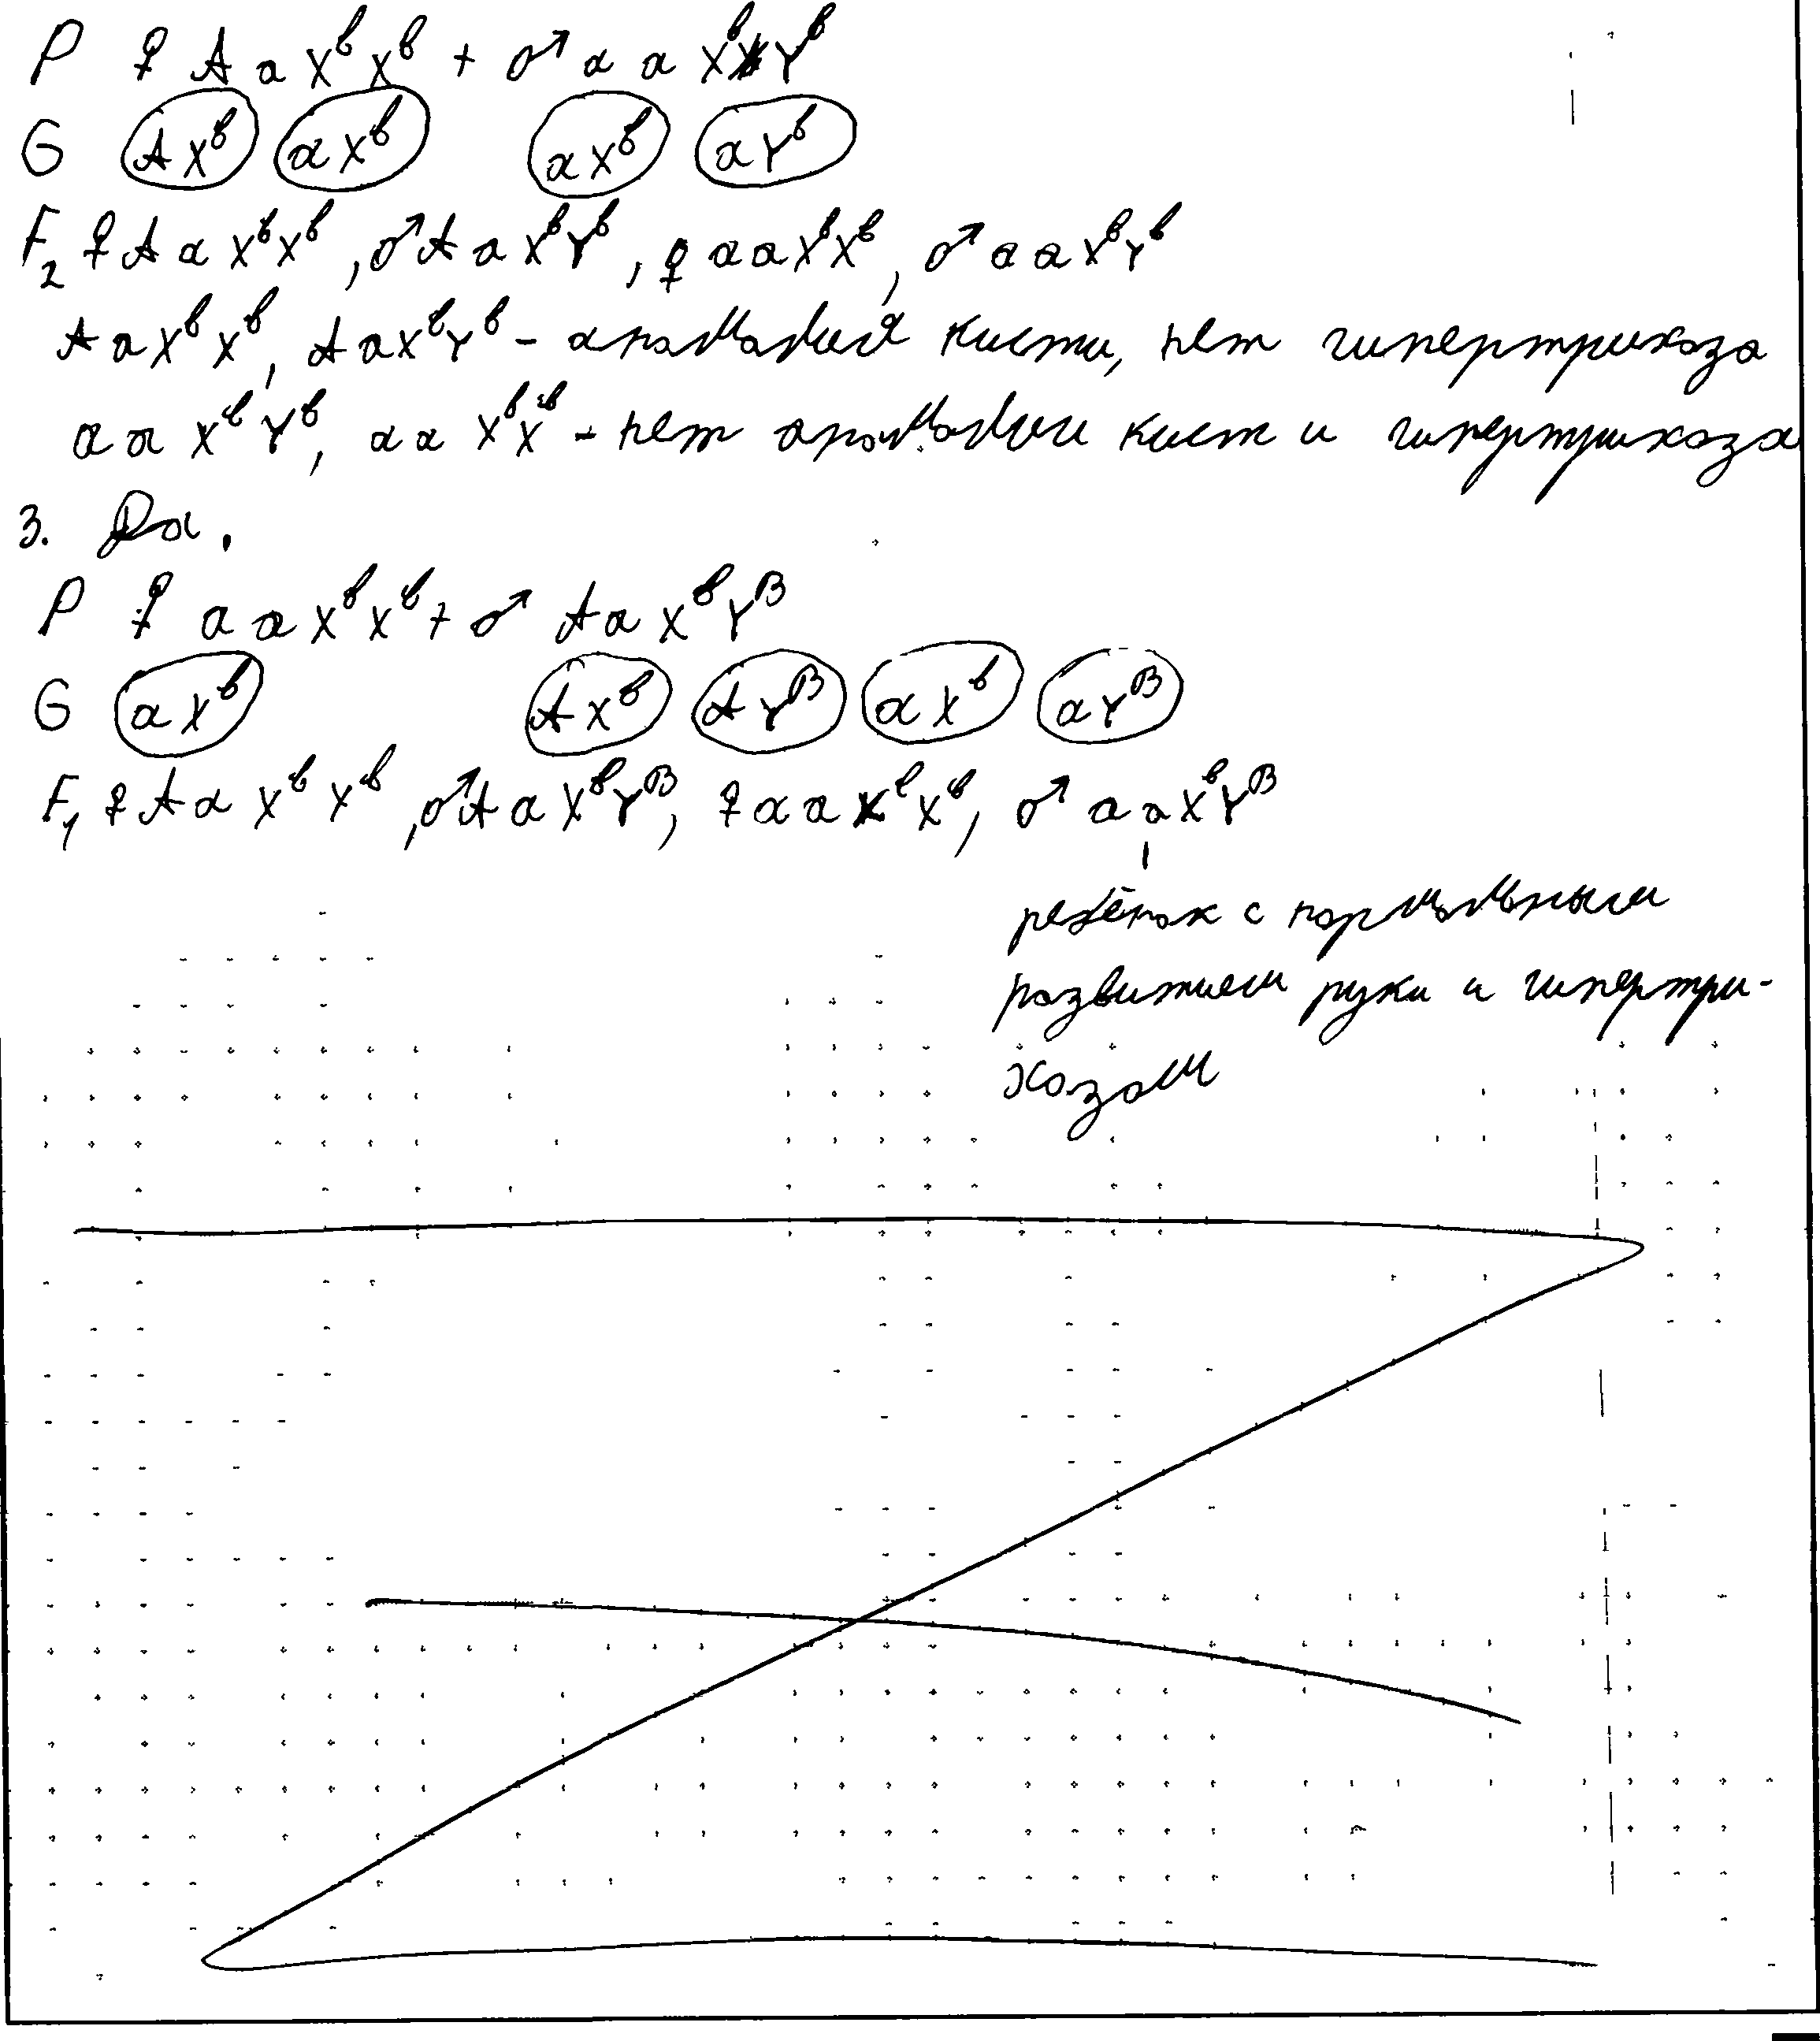 P ♀ AaXᵇXᵇ + ♂ aaXᵇYᵇ
G AXᵇ aXᵇ aXᵇ aYᵇ
F₂ ♀ AaXᵇXᵇ, ♂ AaXᵇYᵇ, ♀ aaXᵇXᵇ, ♂ aaXᵇYᵇ
AaXᵇXᵇ, AaXᵇYᵇ - аномалия кисти, нет гипертрихоза
aaXᵇYᵇ, aaXᵇXᵇ - нет аномалии кист и гипертрихоза
3. Да.
P ♀ aaXᵇXᵇ + ♂ AaXᵇYᴮ
G aXᵇ AXᵇ AYᴮ aXᵇ aYᴮ
F₁ ♀ AaXᵇXᵇ, ♂ AaXᵇYᴮ, ♀ aaXᵇXᵇ, ♂ aaXᵇYᴮ
ребёнок с нормальным
развитием руки и гипертри-
хозом